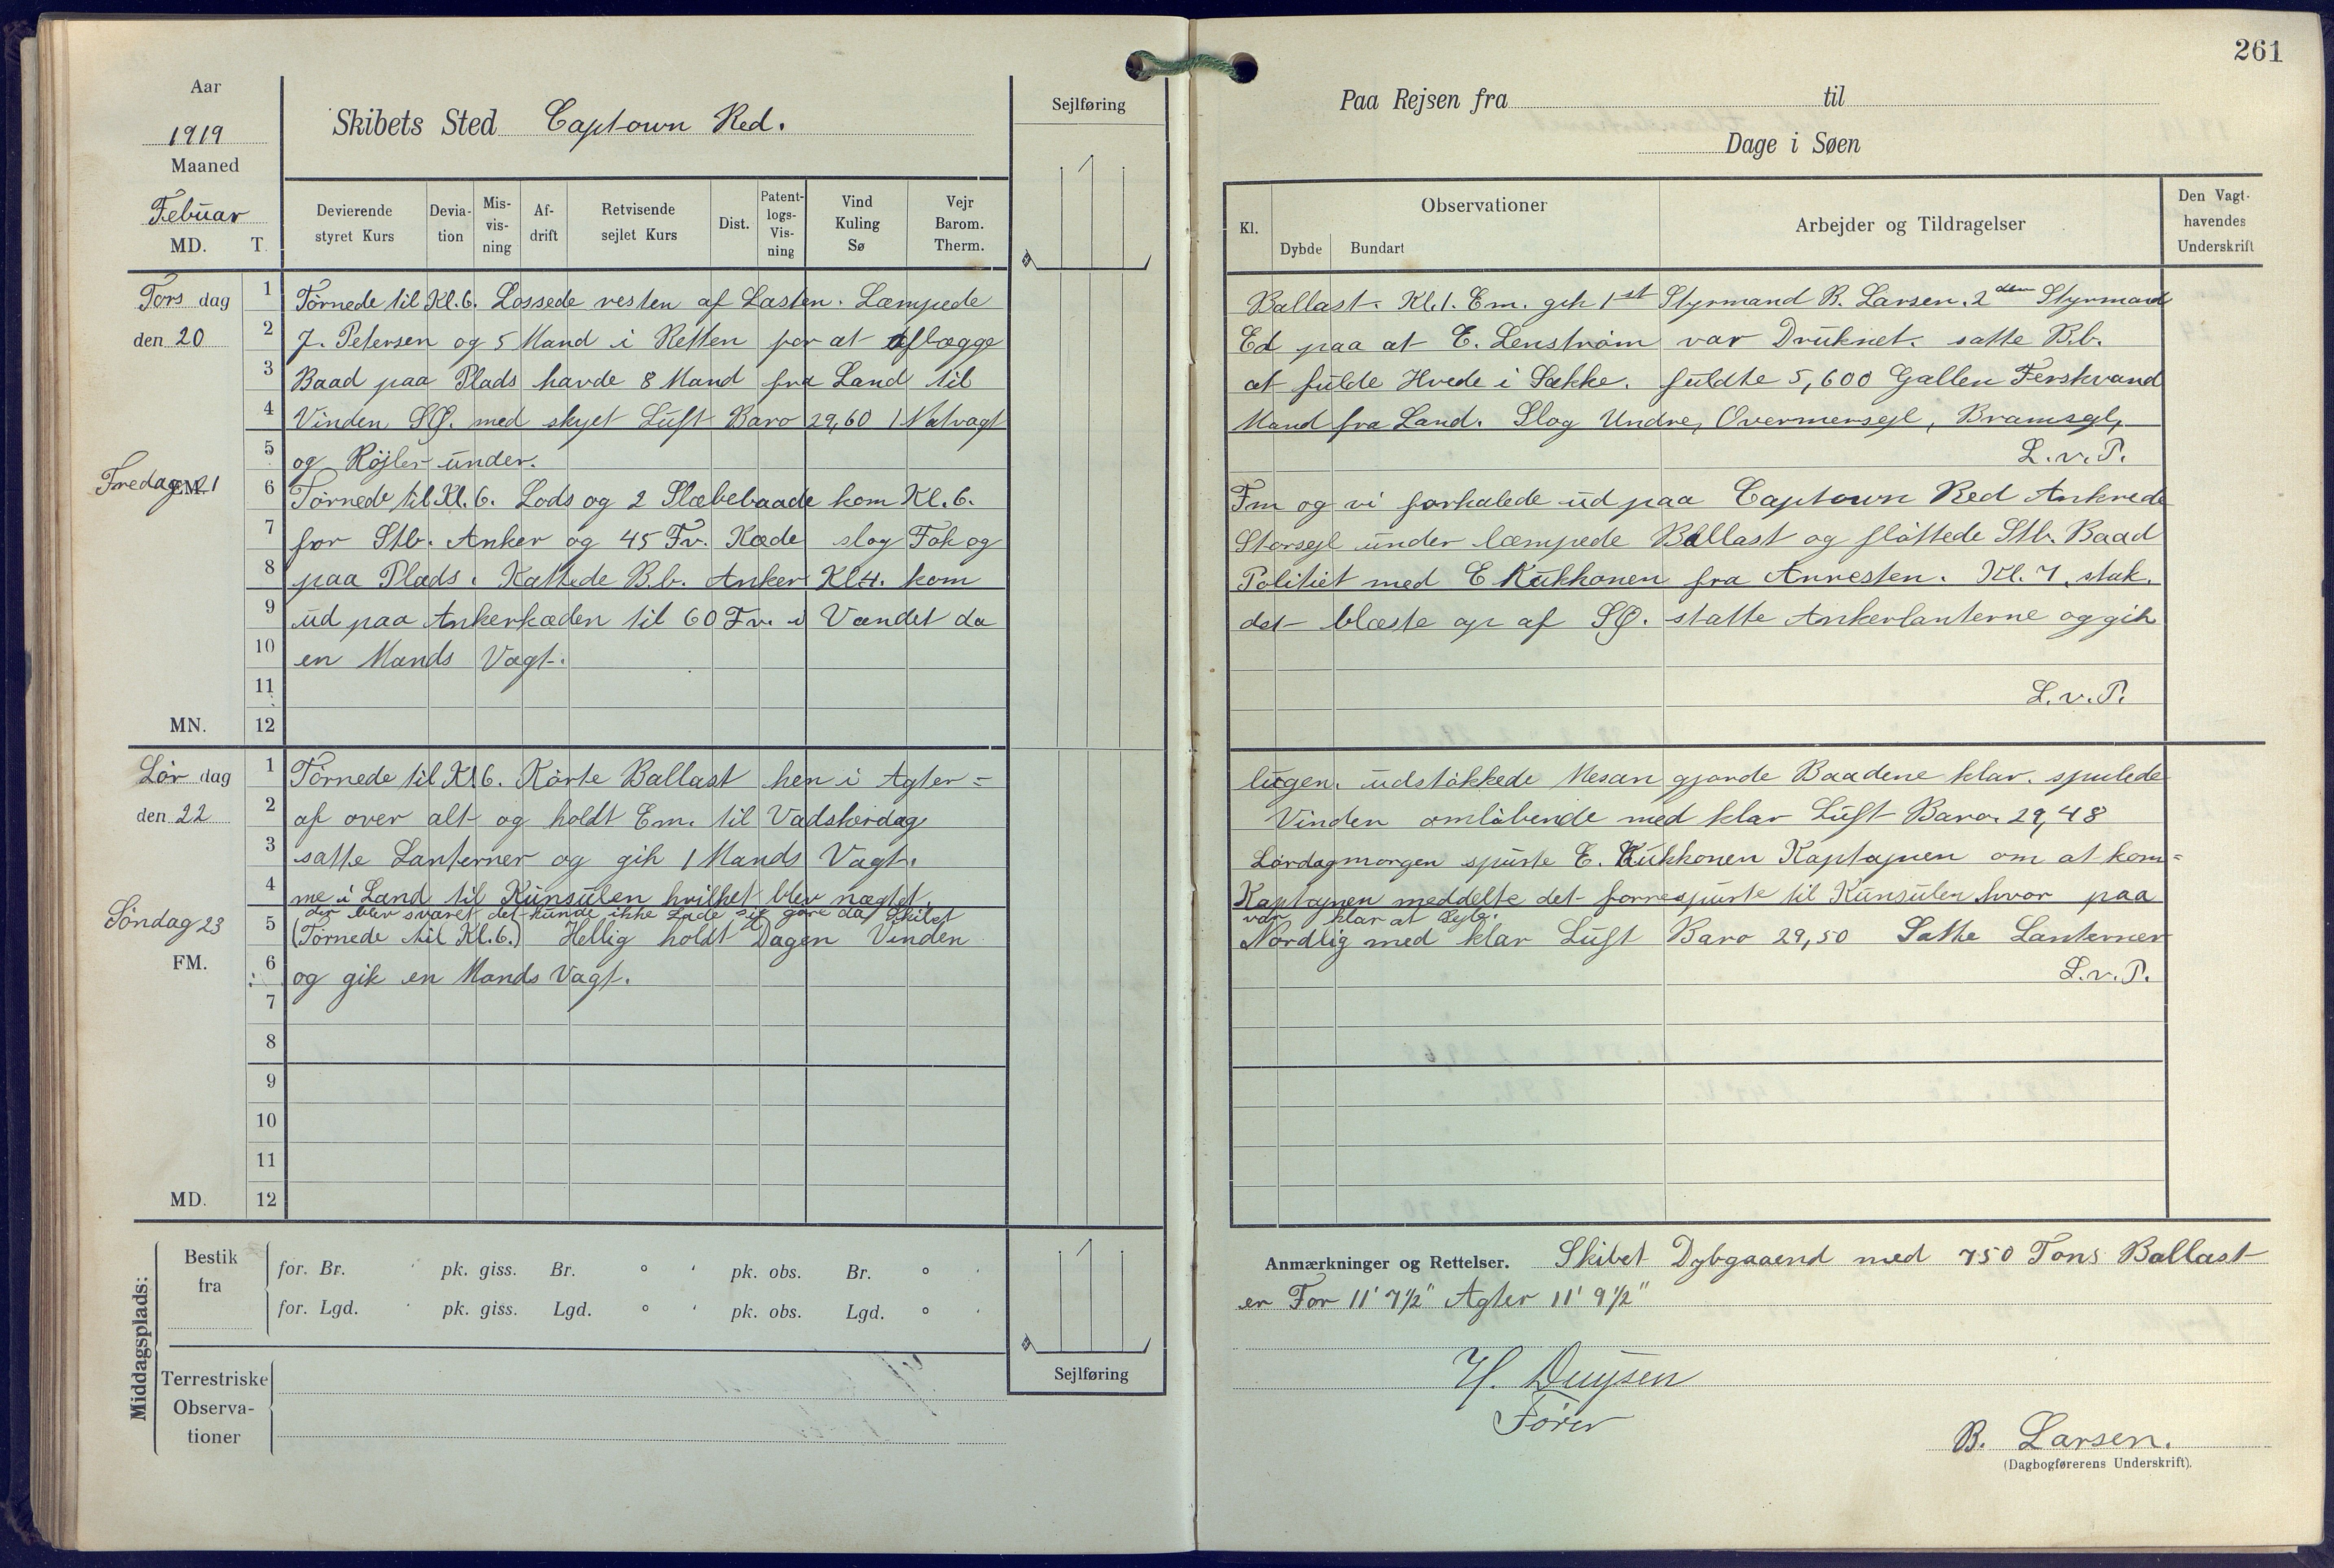 261
Aar
1919
Maaned
Febuar
MD. T.
Skibets Sted Captown Red.
Sejlføring
Devierende styret Kurs
Devia-tion
Mis-vis-ning
Af-drift
Retvisende sejlet Kurs
Dist.
Patent-logs-Vis-ning
Vind Kuling Sø
Vejr Barom. Therm.
Paa Rejsen fra til
Dage i Søen
Kl.
Observationer
Dybde Bundart
Arbejder og Tildragelser
Den Vagt-havendes Underskrift
Tors dag
den 20
1 Tørnede til Kl. 6. Lossede resten af Lasten. Læmpede Ballast. Kl. 1. Em. gik 1st Styrmand B. Larsen. 2den Styrmand
2 J. Petersen og 5 Mand i Retten for at aflægge Ed paa at E. Lenstrøm var Druknet. satte B.b.
3 Baad paa Plads havde 8 Mand fra Land til at fulde Hvede i Sække. fuldte 5,600 Gallen Ferskvand
4 Vinden SØ. med skyet Luft Baro 29,60 1 Natvagt Mand fra Land. Slog Undre, Overmersejl, Bramsejl,
5 og Røjler under. L.v.P.
Fredag 21
EM.
6 Tørnede til Kl. 6. Lods og 2 Slæbebaade kom Kl. 6. Fm og vi forhalede ud paa Captown Red Ankrede
7 for Stb. Anker og 45 Fv. Kæde slog Fok og Storsejl under læmpede Ballast og fløttede Stb. Baad
8 paa Plads. Kattede B.b. Anker Kl 4. kom Politiet med E Kukkonen fra Arresten. Kl. 7. stak.
9 ud paa Ankerkæden til 60 Fv. i Vandet da det blæste op af SØ. statte Ankerlanterne og gik
10 en Mands Vagt.
11 L.v.P.
MN. 12
Lør dag
den 22
1 Tørnede til Kl 6. Kørte Ballast hen i Agter= lugen. udstøkkede Mesan gjorde Baadene klar. spulede
2 af over alt og holdt Em. til Vadskerdag Vinden omløbende med klar Luft Baro. 29,48
3 satte Lanterner og gik 1 Mands Vagt. Lørdagmorgen spurte E. Kukkonen Kaptajnen om at kom=
4 me i Land til Kunsulen hvilket blev nægtet. Kaptajnen meddelte det forrespurte til Kunsulen hvor paa
der blev svaret det kunde ikke Lade sig gøre da Skibet var klar at Sejle.
Søndag 23
5 (Tørnede til Kl. 6.) Hellig holdt Dagen Vinden Nordlig med klar Luft Baro 29,50 Satte Lanterner
FM.
6 og gik en Mands Vagt. L.v.P.
7
8
9
10
11
MD. 12
Middagsplads:
Bestik fra
for. Br. ' pk. giss. Br. ° ' pk. obs. Br. ° '
for. Lgd. ' pk. giss. Lgd. ° ' pk. obs. Lgd. ° '
Terrestriske Observa-tioner
Sejlføring
Anmærkninger og Rettelser. Skibet Dybgaaend med 750 Tons Ballast
er For 11' 7½" Agter 11' 9½"
H. Duysen
Fører
B. Larsen.
(Dagbogførerens Underskrift).